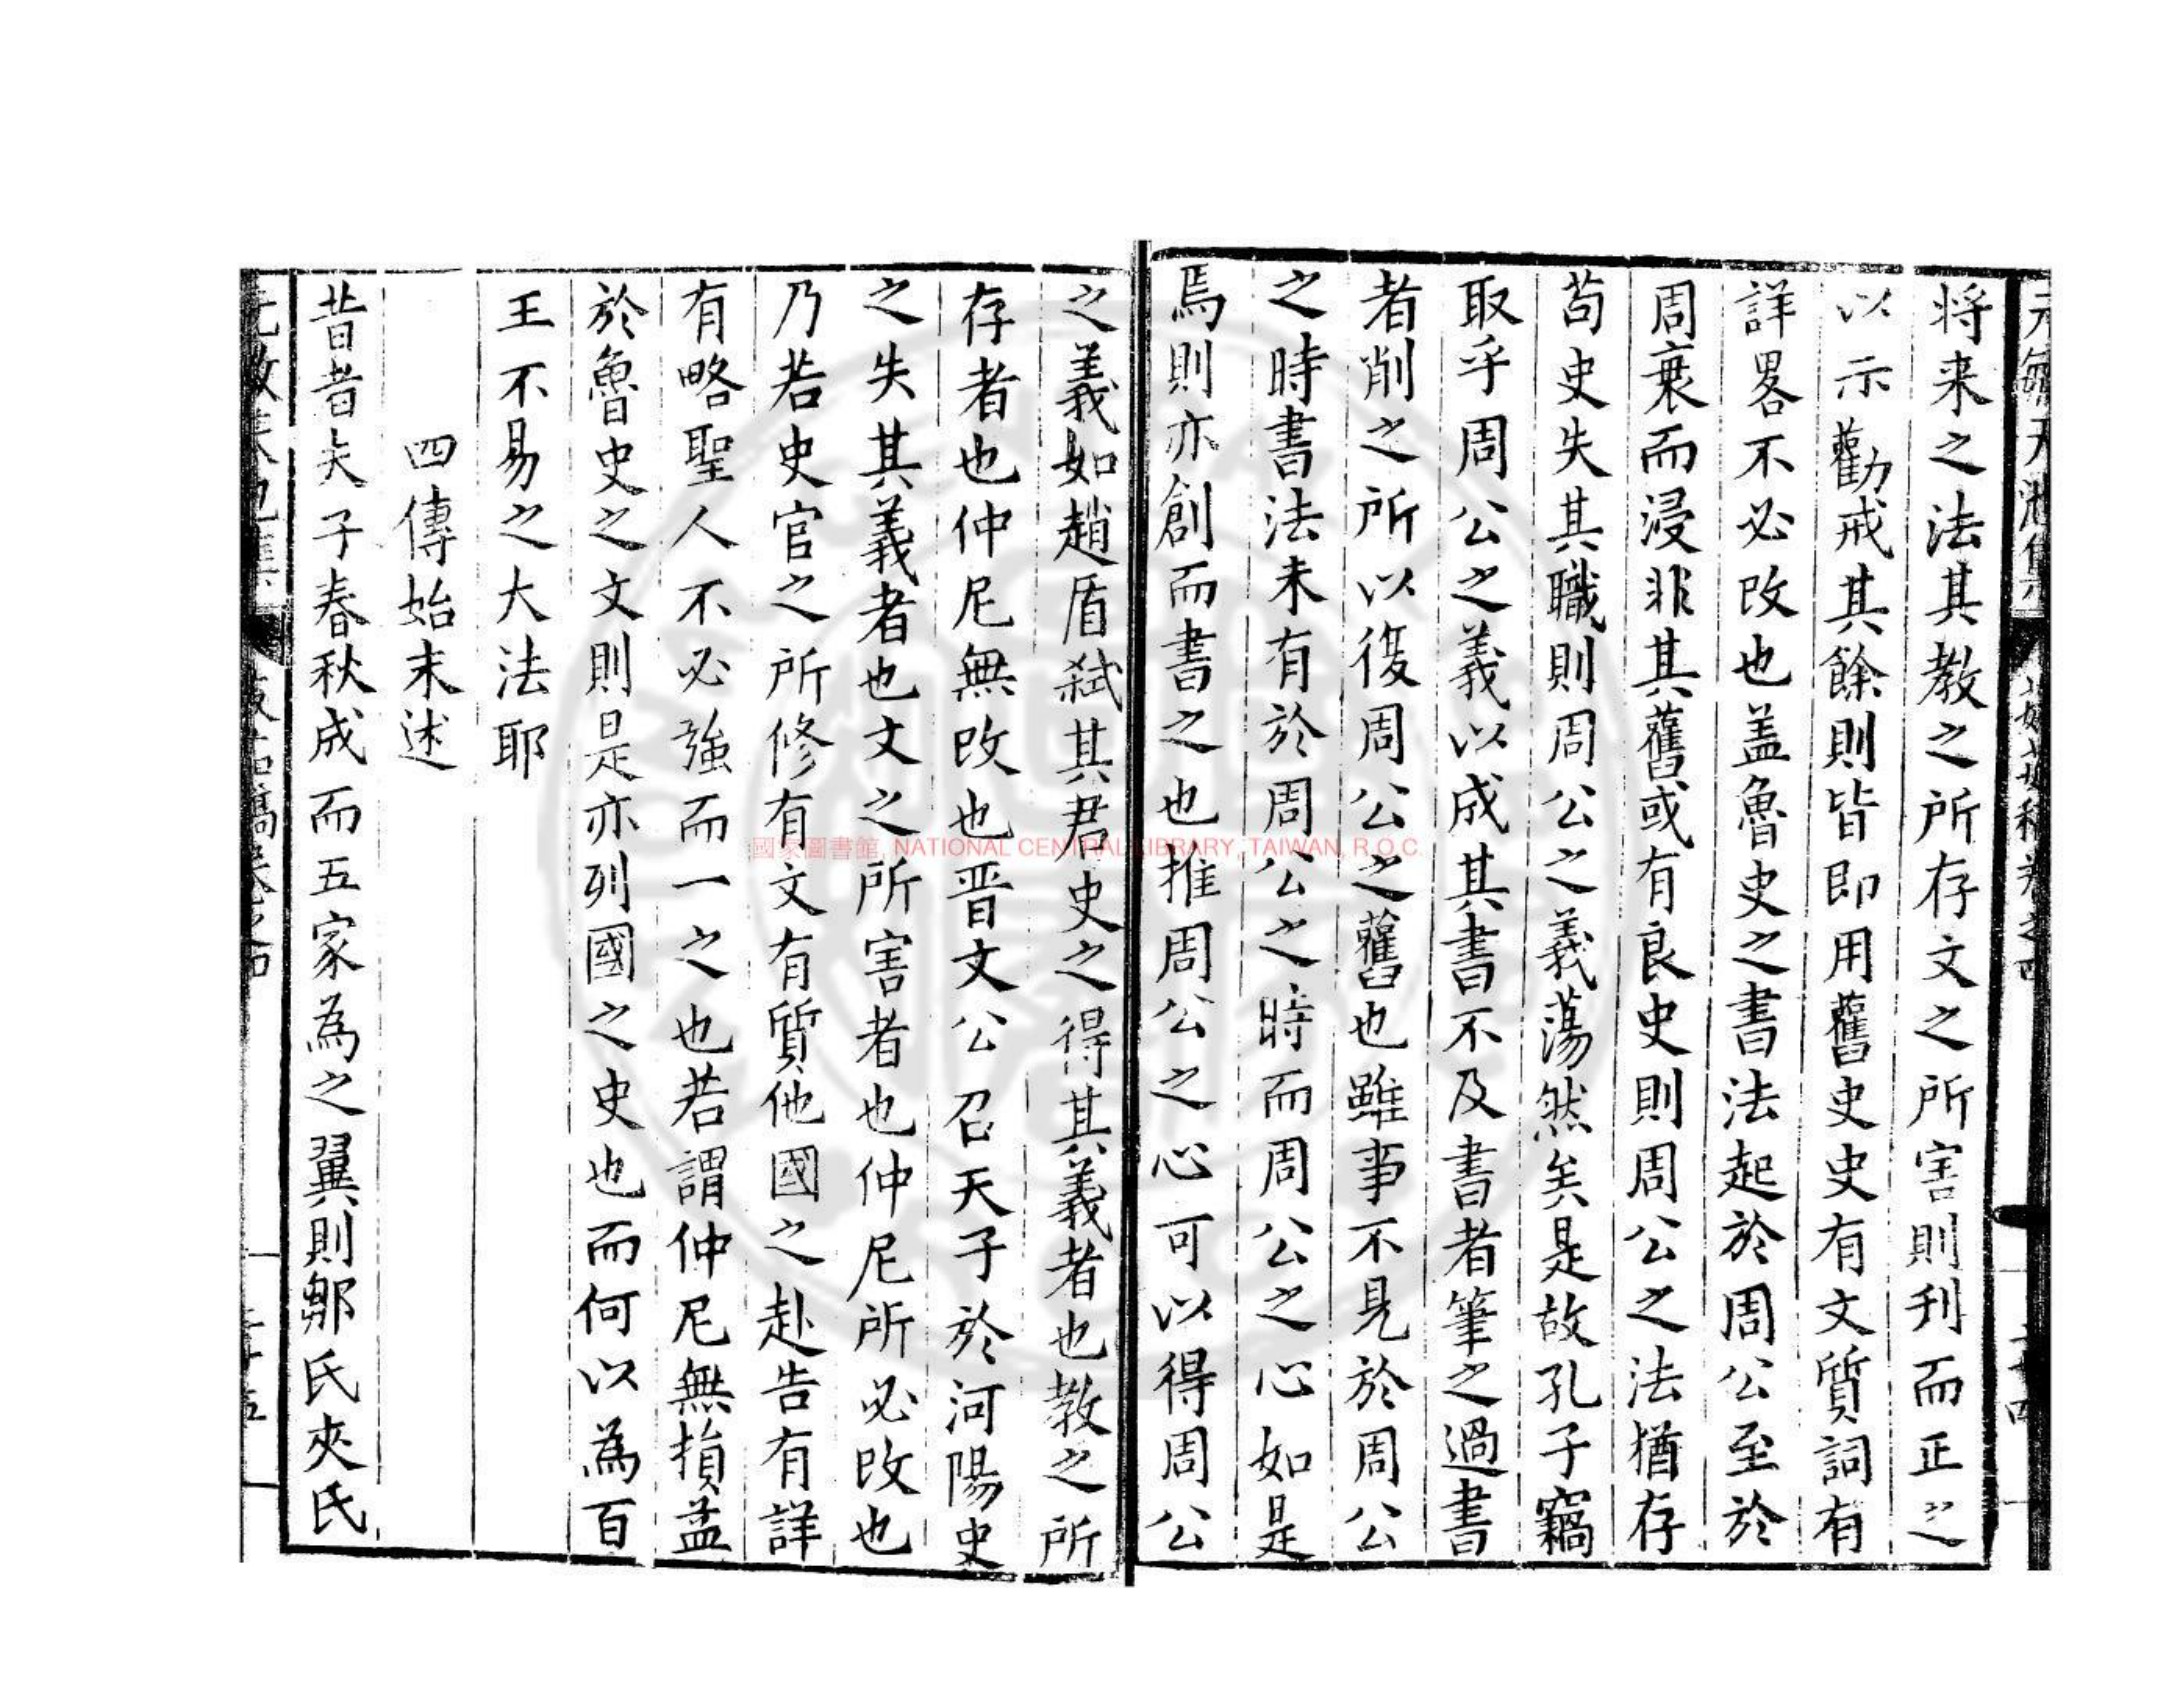 將来之法其教之所存文之所害則刋而正之
以示勸戒其餘則皆即用舊史史有文質詞有
詳畧不必改也盖魯史之書法起於周公至於
周衰而浸非其舊或有良史則周公之法猶存
茍史失其職則周公之義蕩然矣是故孔子竊
取乎周公之義以成其書不及書者筆之過書
者削之所以復周公之舊也雖事不見於周公
之時書法未有於周公之時而周公之心如是
焉則亦創而書之也推周公之心可以得周公
之義如趙盾弑其君史之得其義者也教之所
存者也仲尼無改也晉文公召天子於河陽史
之失其義者也文之所害者也仲尼所必改也
乃若史官之所修有文有質他國之赴告有詳
有略聖人不必強而一之也若謂仲尼無損益
於魯史之文則是亦列國之史也而何以為百
王不易之大法耶
四傳始末述
昔者夫子春秋成而五家為之翼則鄒氏夾氏
國家圖書館, NATIONAL CENTRAL LIBRARY, TAIWAN, R.O.C